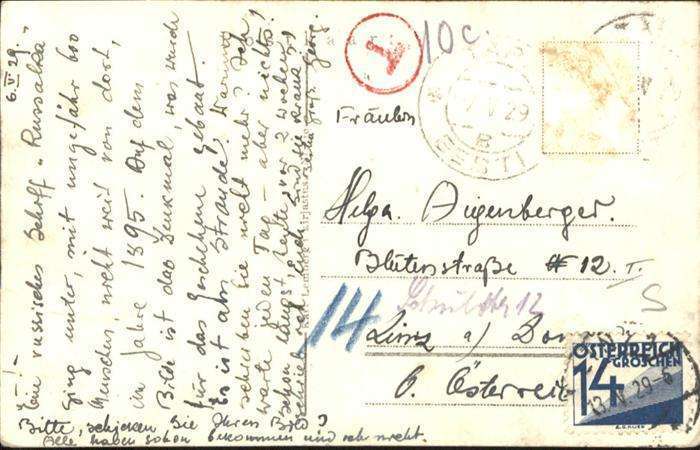 6.V.29.
– ! –
Ein russisches Schiff „Russalka"
ging unter, mit ungefähr 600
Menschen, nicht weit von dort,
im Jahre 1895. Auf dem
Bilde ist das Denkmal, was wurde
für das Geschehene gebaut.
Es ist am Strande! Warum
schreiben Sie nicht mehr? Ich
warte jeden Tag – aber nichts!
schon längst, vor 2 Wochen
Bitte, schicken Sie Ihres Bild!
Alle haben schon bekommen und ich nicht.
T
10 c.
EESTI
29
Fräulein
Helga Aigenberger.
Blütenstraße # 12. I
14
Linz a/
Österreich
ÖSTERREICH
14 GROSCHEN
29-6